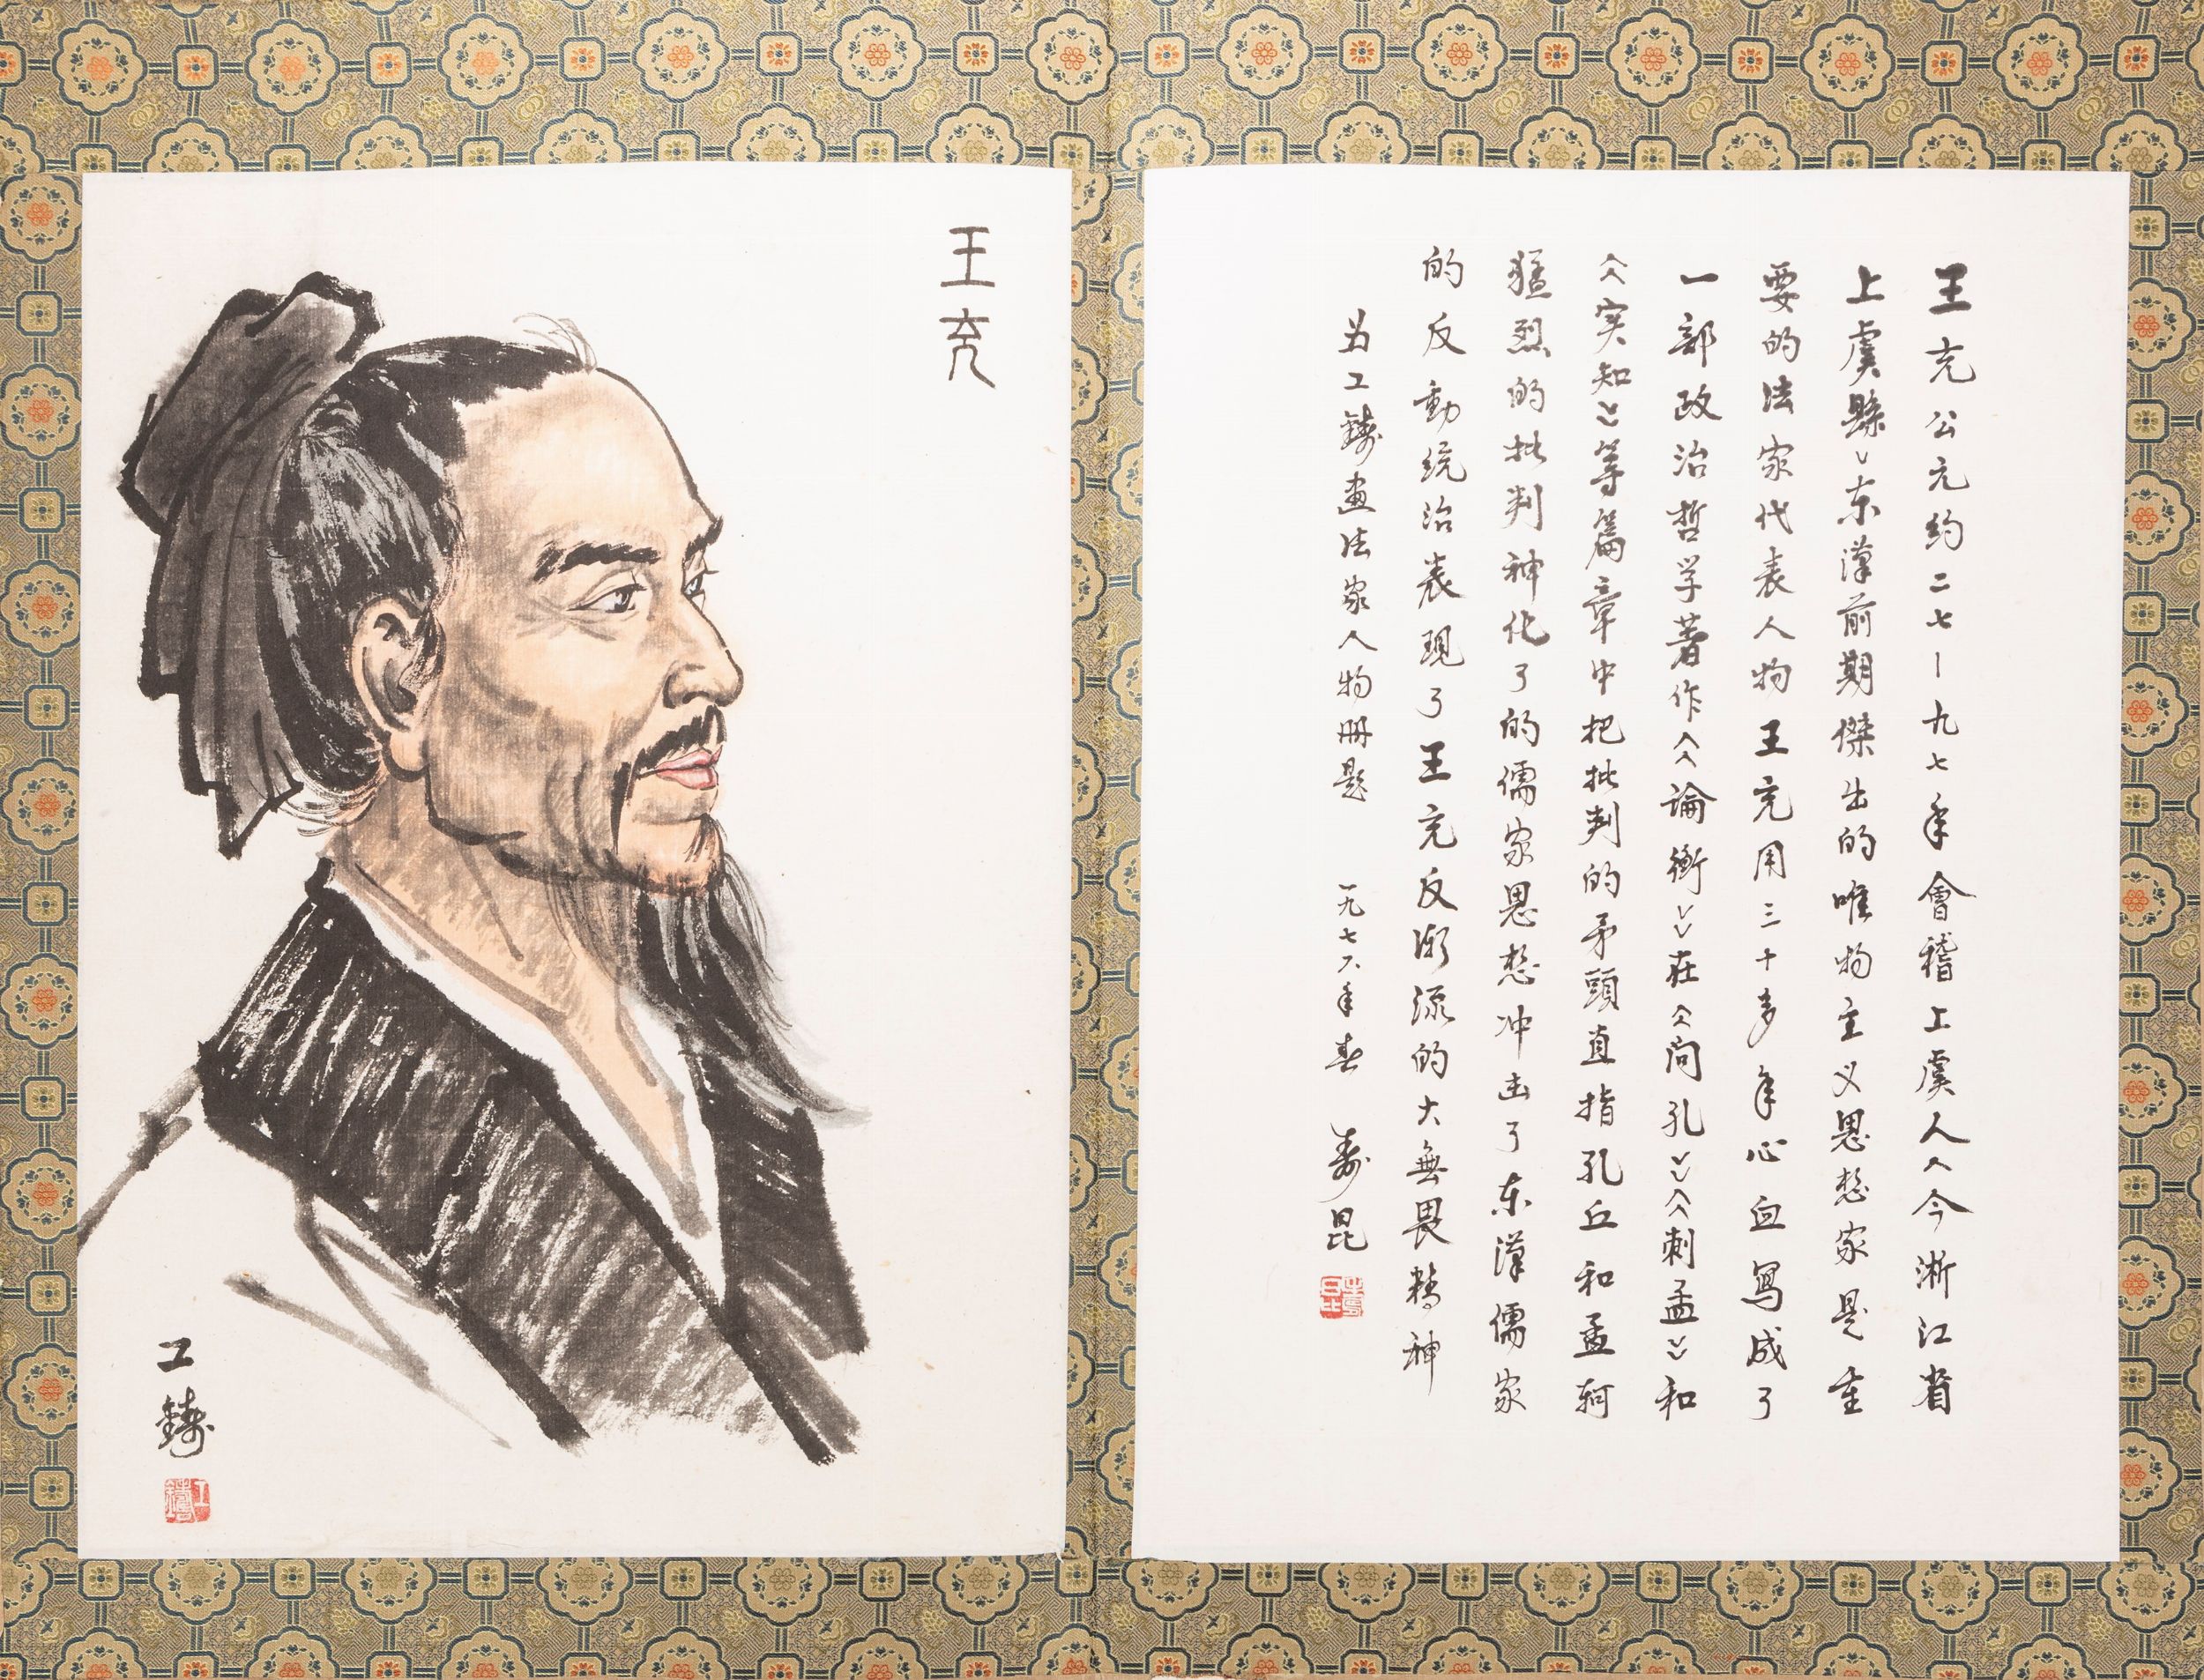 王充公元约二七—九七年會稽上虞人〈今浙江省
上虞縣〉东漢前期傑出的唯物主义思想家是重
要的法家代表人物王充用三十多年心血寫成了
一部政治哲学著作《論衡》在《问孔》《刺孟》和
《实知》等篇章中把批判的矛頭直指孔丘和孟軻
猛烈的批判神化了的儒家思想冲击了东漢儒家
的反動统治表現了王充反潮流的大無畏精神
为工鑄画法家人物册题 一九七六年春 寿昆
王充
工鑄
工鑄